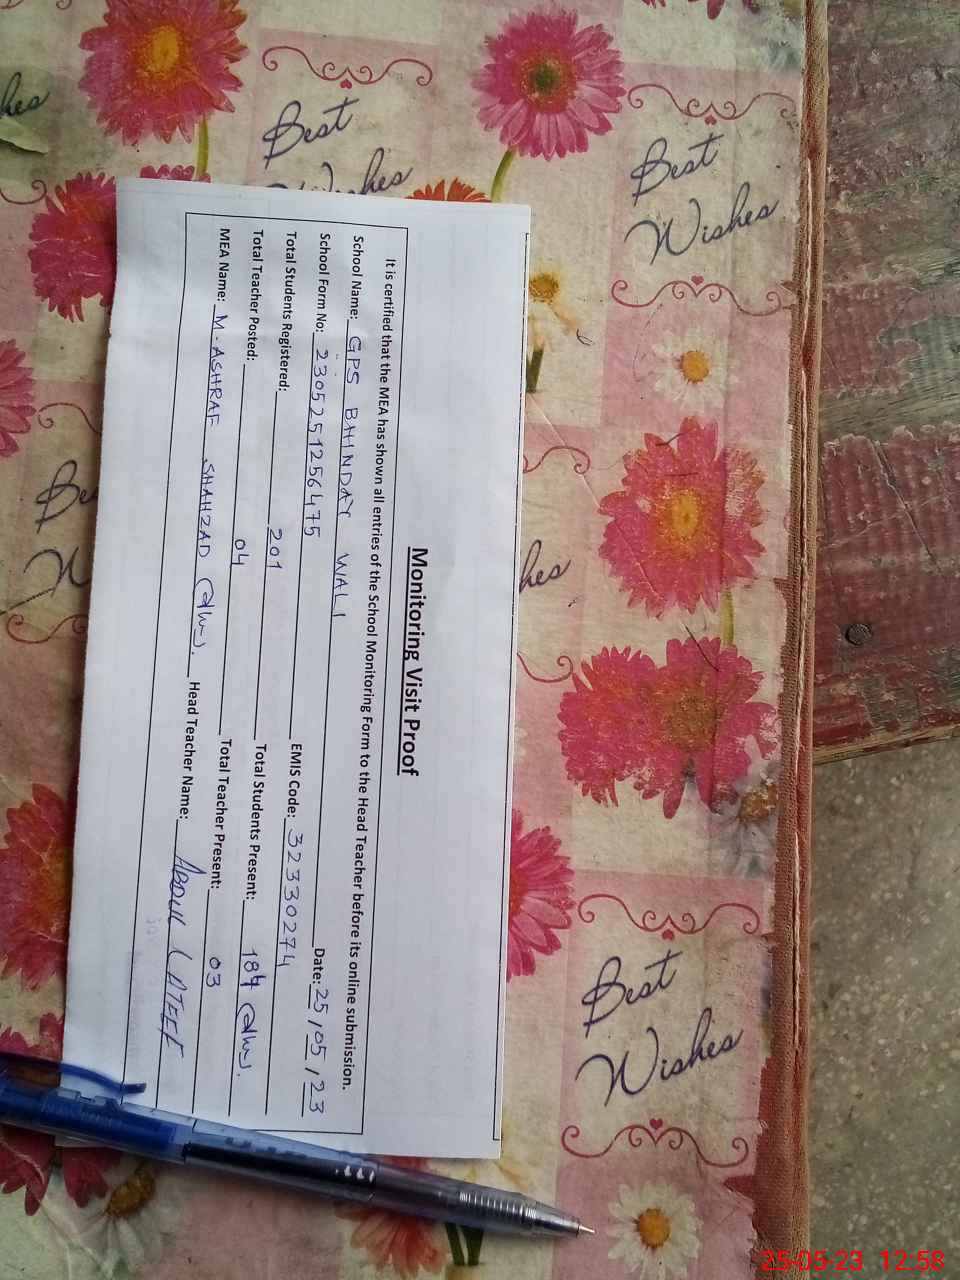 Monitoring Visit Proof
It is certified that the MEA has shown all entries of the School Monitoring Form to the Head Teacher before its online submission.
School Name: GPS BHINDAY WALI
School Form No: 2305251256475 Date: 25/05/23
Total Students Registered: 201 EMIS Code: 32330274
Total Teacher Posted: 04 Total Students Present: 184
MEA Name: M. ASHRAF SHAHZAD Total Teacher Present: 03
Head Teacher Name: ABDUL LATEEF
Best
Wishes
Best
Wishes
Best
Wishes
hes
Be
W
hes
25-05-23 12:58